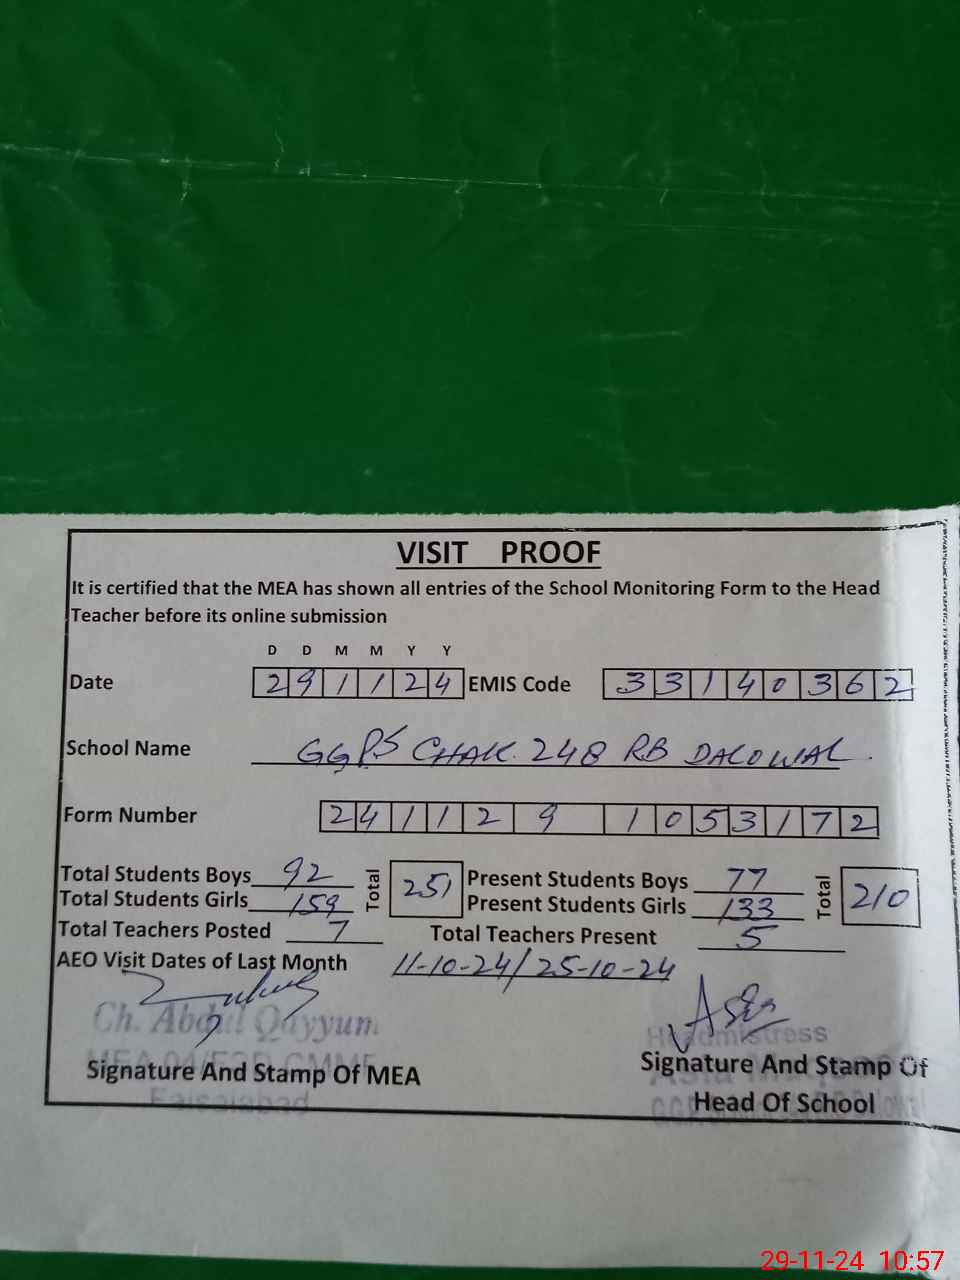 VISIT PROOF
It is certified that the MEA has shown all entries of the School Monitoring Form to the Head
Teacher before its online submission
D D M M Y Y
Date 2 9 1 1 2 4 EMIS Code 3 3 1 4 0 3 6 2
School Name GGPS CHAK. 248 RB DALOWAL.
Form Number 2 4 1 1 2 9 1 0 5 3 1 7 2
Total Students Boys 92 Total 251 Present Students Boys 77 Total 210
Total Students Girls 159 Present Students Girls 133
Total Teachers Posted 7 Total Teachers Present 5
AEO Visit Dates of Last Month 11-10-24/25-10-24
Ch. Abdul Qayyum Asia
Headmistress
Signature And Stamp Of MEA Signature And Stamp Of
Faisalabad Head Of School
29-11-24 10:57